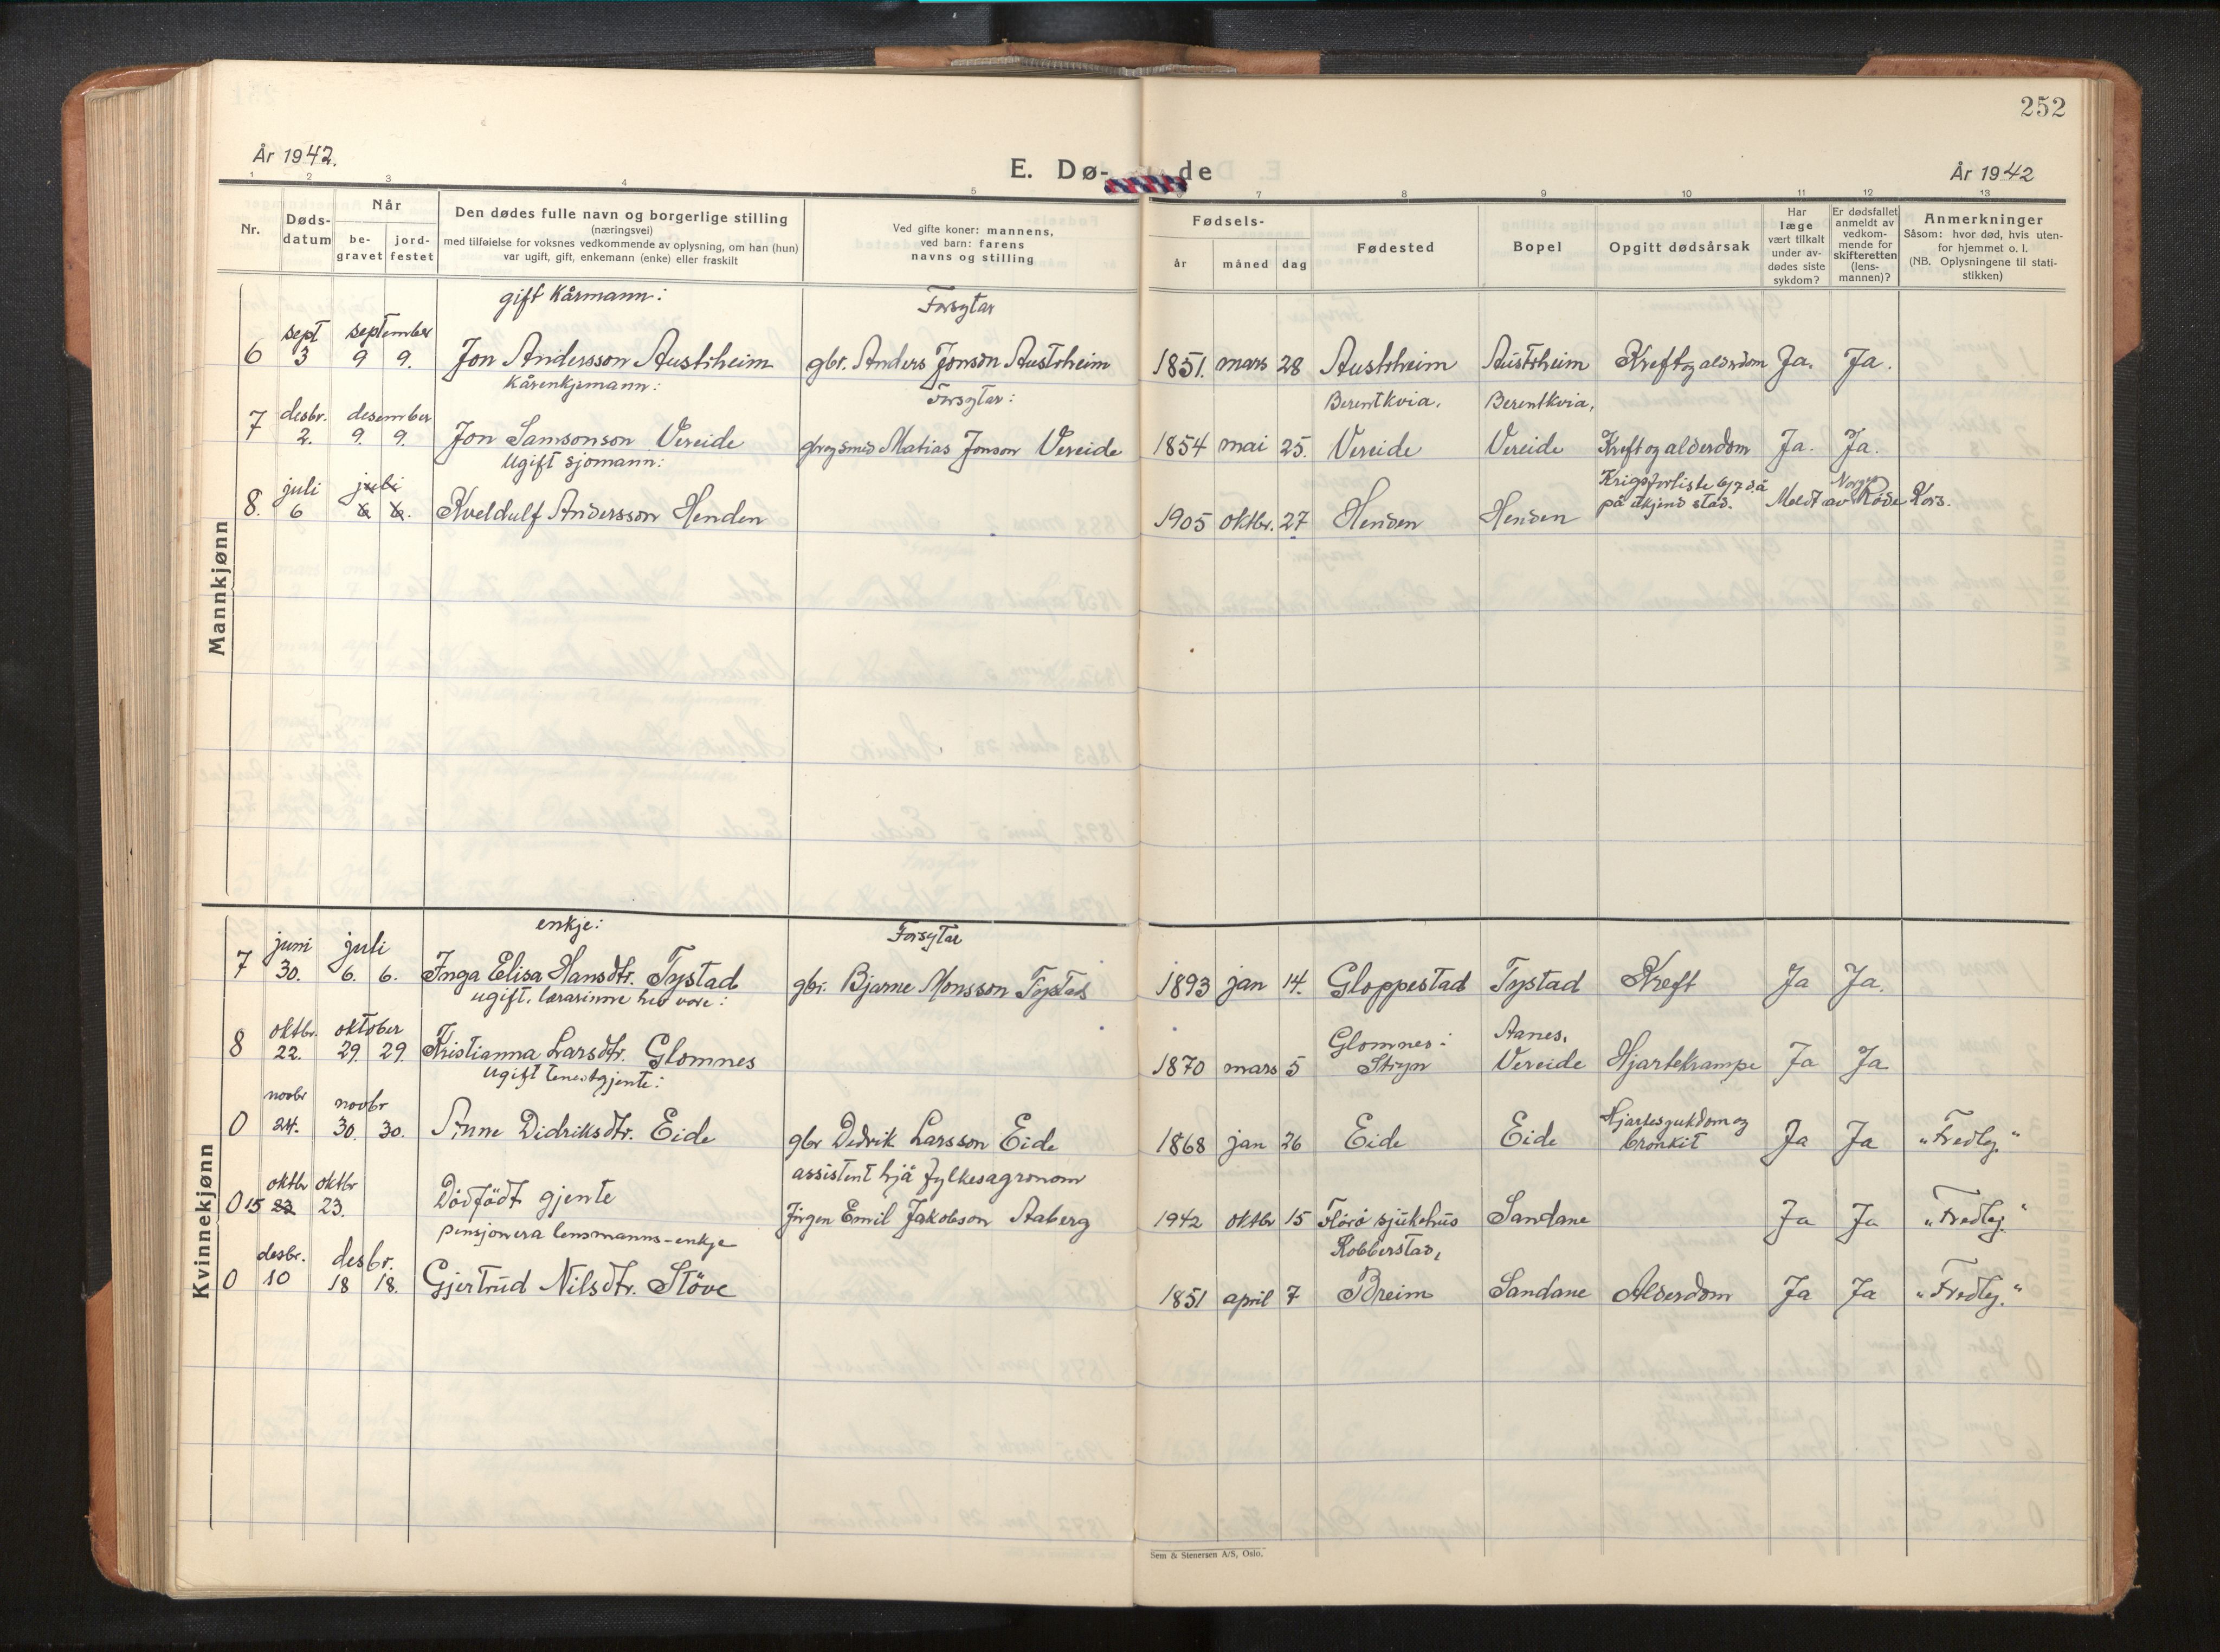 252
År 1942.
E. Dø- de
År 1942
1 2 3 4 5 7 8 9 10 11 12 13
Nr.
Døds-
datum
Når
be-
gravet
jord-
festet
Den dødes fulle navn og borgerlige stilling
(næringsvei)
med tilføielse for voksnes vedkommende av oplysning, om han (hun)
var ugift, gift, enkemann (enke) eller fraskilt
Ved gifte koner: mannens,
ved barn: farens
navns og stilling
Fødsels-
år måned dag
Fødested
Bopel
Opgitt dødsårsak
Har
læge
vært tilkalt
under av-
dødes siste
sykdom?
Er dødsfallet
anmeldt av
vedkom-
mende for
skifteretten
(lens-
mannen)?
Anmerkninger
Såsom: hvor død, hvis uten-
for hjemmet o. l.
(NB. Oplysningene til stati-
stikken)
Mannkjønn
gift kårmann: Forsytar
sept september
6 3 9 9. Jon Andersson Austrheim gbr. Anders Jonson Austrheim 1851. mars 28 Austrheim Austrheim Kreft og alderdom Ja. Ja.
kårenkjemann: Forsytar: Berentkvia, Berentkvia,
desbr. desember
7 2. 9. 9. Jon Samsonson Vereide Matias Jonson Vereide 1854 mai 25. Vereide Vereide Kreft og alderdom Ja. Ja.
Ugift sjømann: Krigsforliste 6/7 d.å Norges
juli juli
8. 6 6 6. Kveldulf Andersson Henden 1905 oktbr. 27 Henden Henden på ukjend stad. Meldt av Røde Kors.
Kvinnekjønn
enkje: Forsytar
juni juli
7 30. 6. 6. Inga Elisa Hansdtr. Tystad gbr. Bjarne Monsson Tystad 1893 jan 14. Gloppestad Tystad Kreft Ja Ja.
ugift. lærarinne
oktbr. oktober Glomnes i Aanes,
8 22. 29. 29. Kristianna Larsdtr. Glomnes 1870 mars 5 Stryn Vereide Hjartekrampe Ja Ja
Ugift tenestgjente:
novbr novbr Hjartesjukdom og
0 24. 30. 30. Anne Didriksdtr. Eide gbr Dedrik Larsson Eide 1868 jan 26 Eide Eide bronkit Ja Ja "Fredly."
assistent hjå fylkesagronom
oktbr oktbr
0 15 23 23. Dödfödt gjente Jörgen Emil Jakobson Aaberg 1942 oktbr 15 Florö sjukehus Sandane Ja Ja "Fredly."
pensjonera lensmanns-enkje Robberstad,
desbr. desbr.
0 10 18 18. Gjertrud Nilsdtr. Stöve 1851 april 7 Breim Sandane Alderdom Ja Ja "Fredly."
Sem & Stenersen A/S, Oslo.